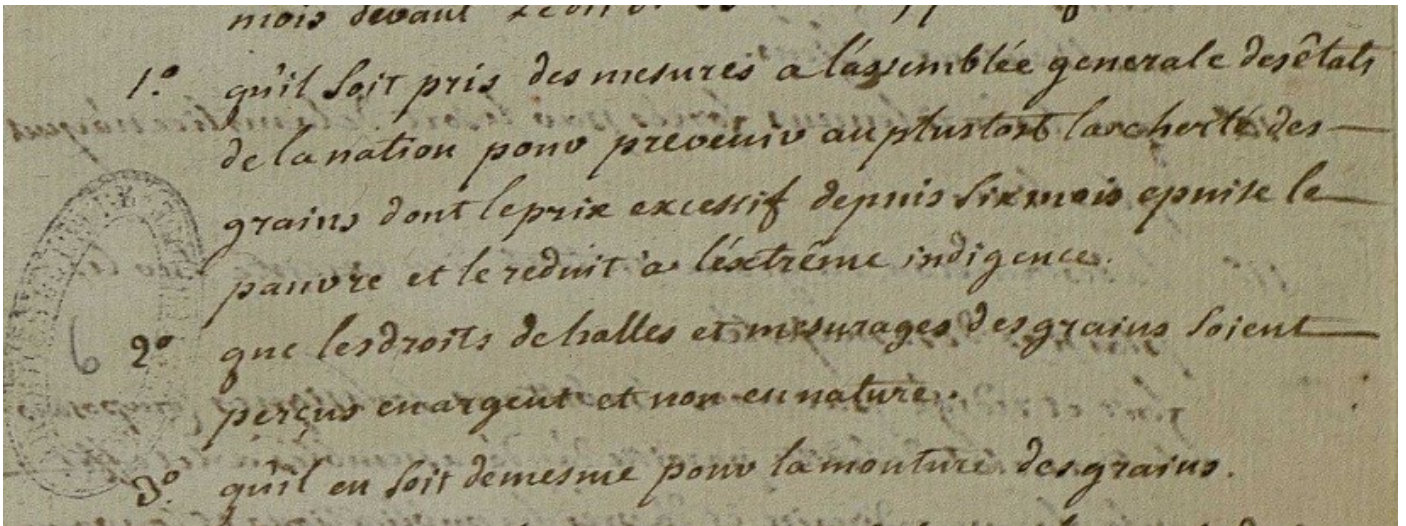 mois devant
1.° qu'il soit pris des mesures a l'assemblée generale des êtats
de la nation pour prevenir au plustost la cherté des
grains dont le prix excessif depuis six mois epuise le
pauvre et le reduit a l'éxtrême indigence.
2° que les droits de halles et mesurages des grains soient
perçus en argent et non en nature.
3.° qu'il en soit de mesme pour la mouture des grains.